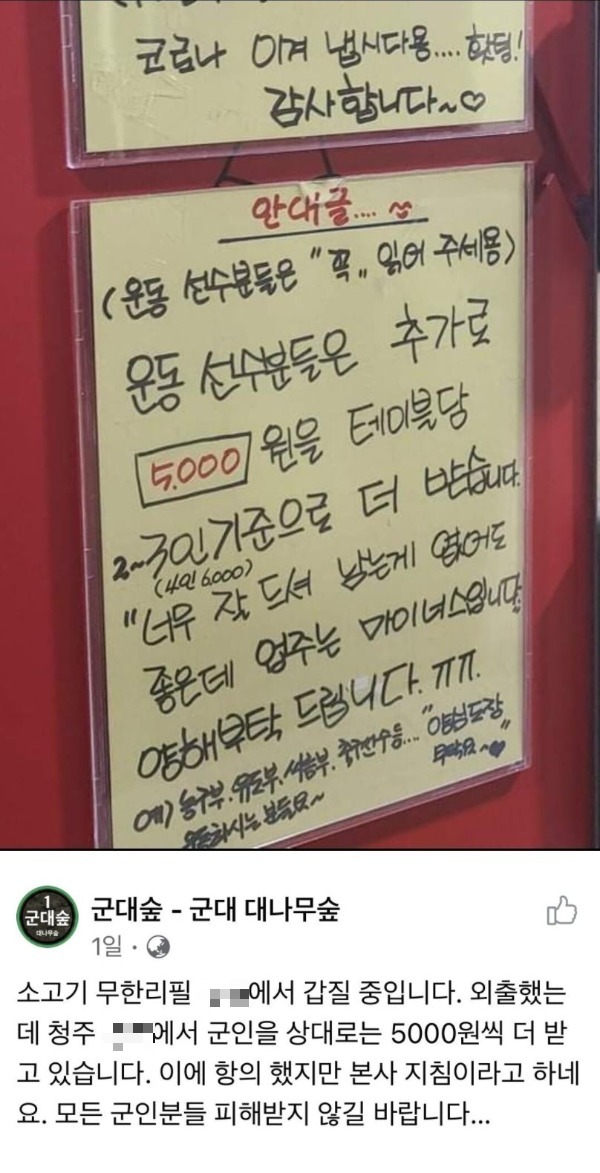 코로나 이겨 냅시다용.... 홧팅!
감사합니다~♡
안내글....
(운동 선수분들은 "꼭" 읽어 주세용)
운동 선수분들은 추가로
5.000 원을 테이블당
2~3인기준으로 더 받습니다.
(4인 6,000)
"너무 잘 드셔 남는게 없어도
좋은데 업주는 마이너스입니다.
양해부탁 드립니다. ㅠㅠ.
예) 농구부.유도부.씨름부.축구선수등... "양심도장"
부탁요~♥
운동하시는 분들요~
1
군대숲
대나무숲
군대숲 - 군대 대나무숲
1일 ·
소고기 무한리필 에서 갑질 중입니다. 외출했는
데 청주 에서 군인을 상대로는 5000원씩 더 받
고 있습니다. 이에 항의 했지만 본사 지침이라고 하네
요. 모든 군인분들 피해받지 않길 바랍니다...